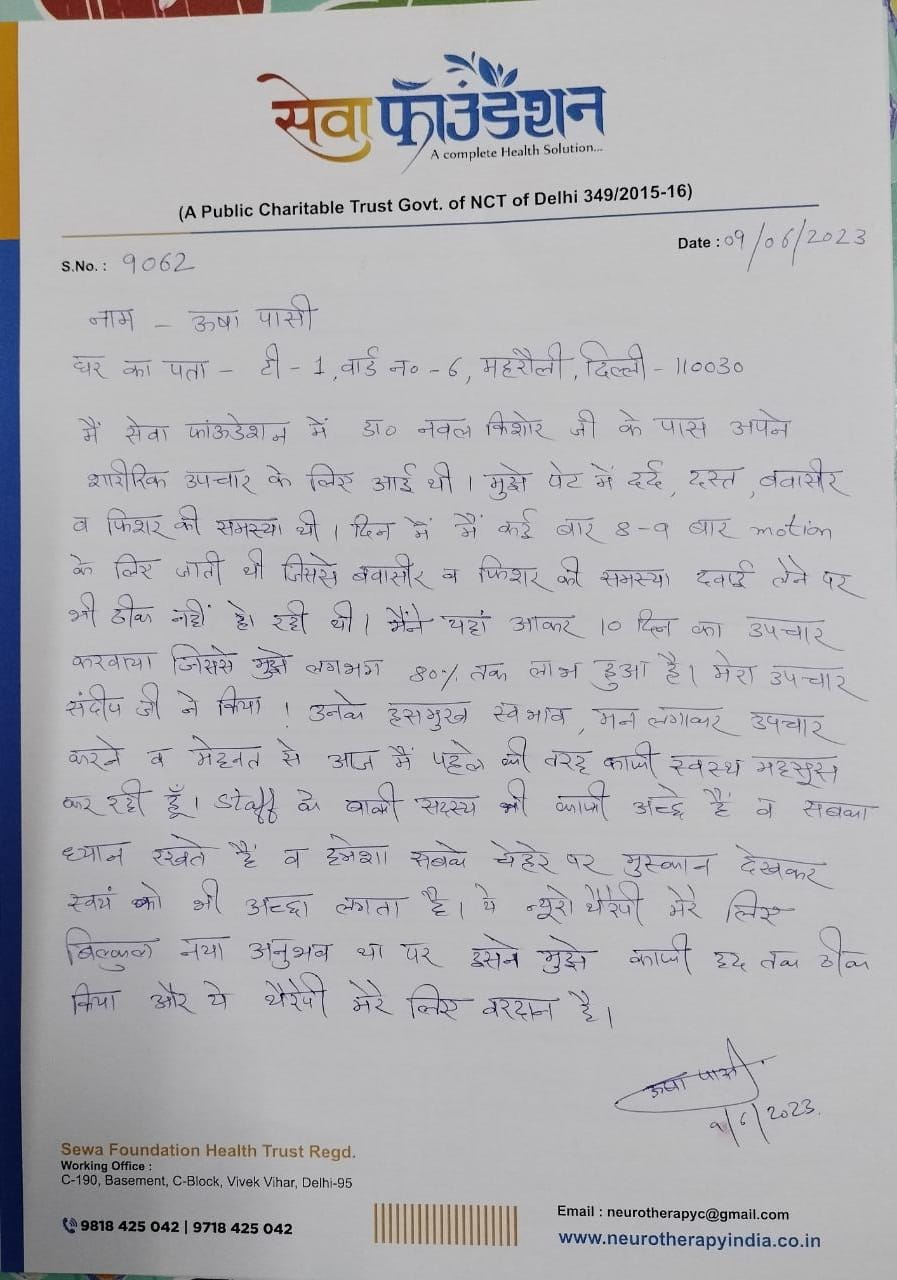 सेवा फॉउंडेशन
A complete Health Solution...
(A Public Charitable Trust Govt. of NCT of Delhi 349/2015-16)
Date : 09/06/2023
S.No. : 9062
नाम - ऊषा पासी
घर का पता - टी-1, वार्ड न० -6, महरौली, दिल्ली - 110030
मैं सेवा फांऊडेशन में डा० नवल किशोर जी के पास अपने
शारीरिक उपचार के लिए आई थी। मुझे पेट में दर्द, दस्त, बवासीर
व फिशर की समस्या थी। दिन में मैं कई बार 8-9 बार motion
के लिए जाती थी जिससे बवासीर व फिशर की समस्या दवाई लेने पर
भी ठीक नहीं हो रही थी। मैंने यहां आकर 10 दिन का उपचार
करवाया जिससे मुझे लगभग 80% तक लाभ हुआ है। मेरा उपचार
संदीप जी ने किया। उनके हसमुख स्वभाव, मन लगाकर उपचार
करने व मेहनत से आज मैं पहले की तरह काफी स्वस्थ महसूस
कर रही हूँ। Staff के बाकी सदस्य भी काफी अच्छे हैं व सबका
ध्यान रखते हैं व हमेशा सबके चेहरे पर मुस्कान देखकर
स्वयं को भी अच्छा लगता है। ये न्यूरो थैरेपी मेरे लिए
बिल्कुल नया अनुभव था पर इसने मुझे काफी हद तक ठीक
किया और ये थैरेपी मेरे लिए वरदान है।
ऊषा पासी
9/6/2023.
Sewa Foundation Health Trust Regd.
Working Office :
C-190, Basement, C-Block, Vivek Vihar, Delhi-95
9818 425 042 | 9718 425 042
Email : neurotherapyc@gmail.com
www.neurotherapyindia.co.in